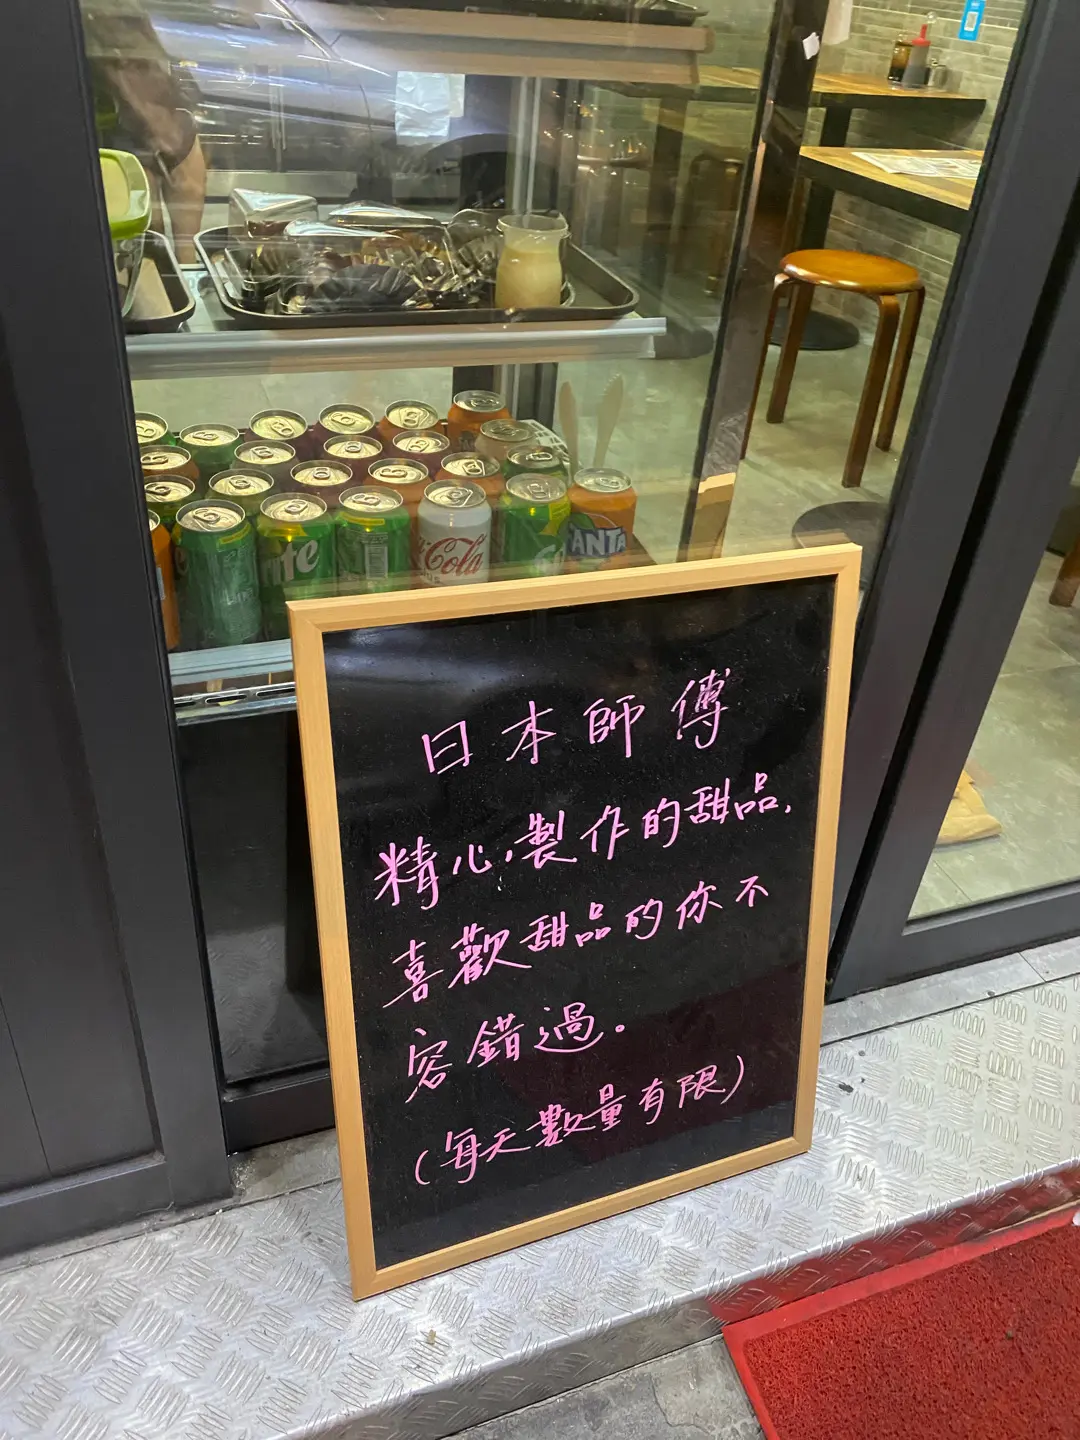 日本師傅
精心製作的甜品,
喜歡甜品的你不
容錯過。
(每天數量有限)
Coca-Cola
FANTA